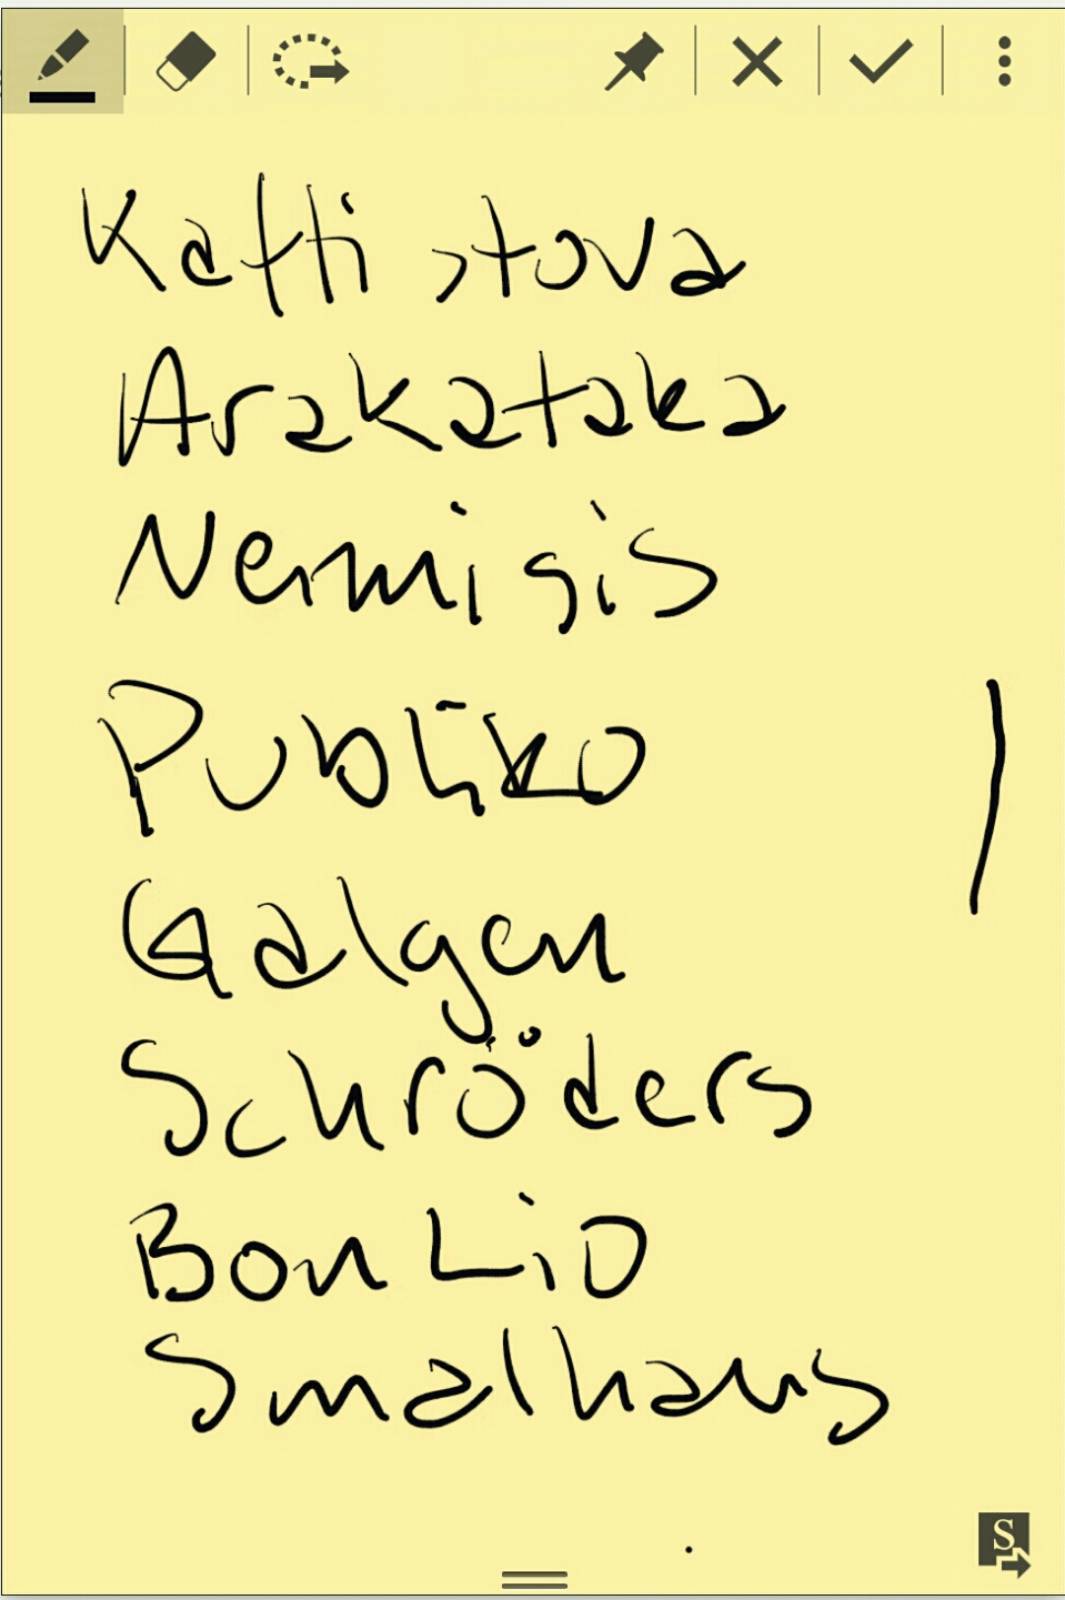 Katti stova
Arakataka
Nemisis
Publiko
Galgen
Schröders
Bon Lio
Smalhans
S